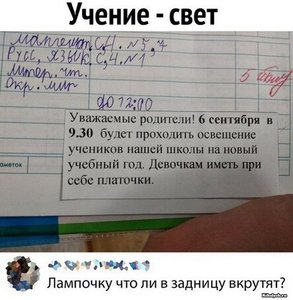 Учение - свет
Математ. С.4. №5,7
Русс. язык. С.4. №1
Литер. чт.
Окр. мир
до 12:00
Уважаемые родители! 6 сентября в
9.30 будет проходить освещение
учеников нашей школы на новый
учебный год. Девочкам иметь при
себе платочки.
Лампочку что ли в задницу вкрутят?